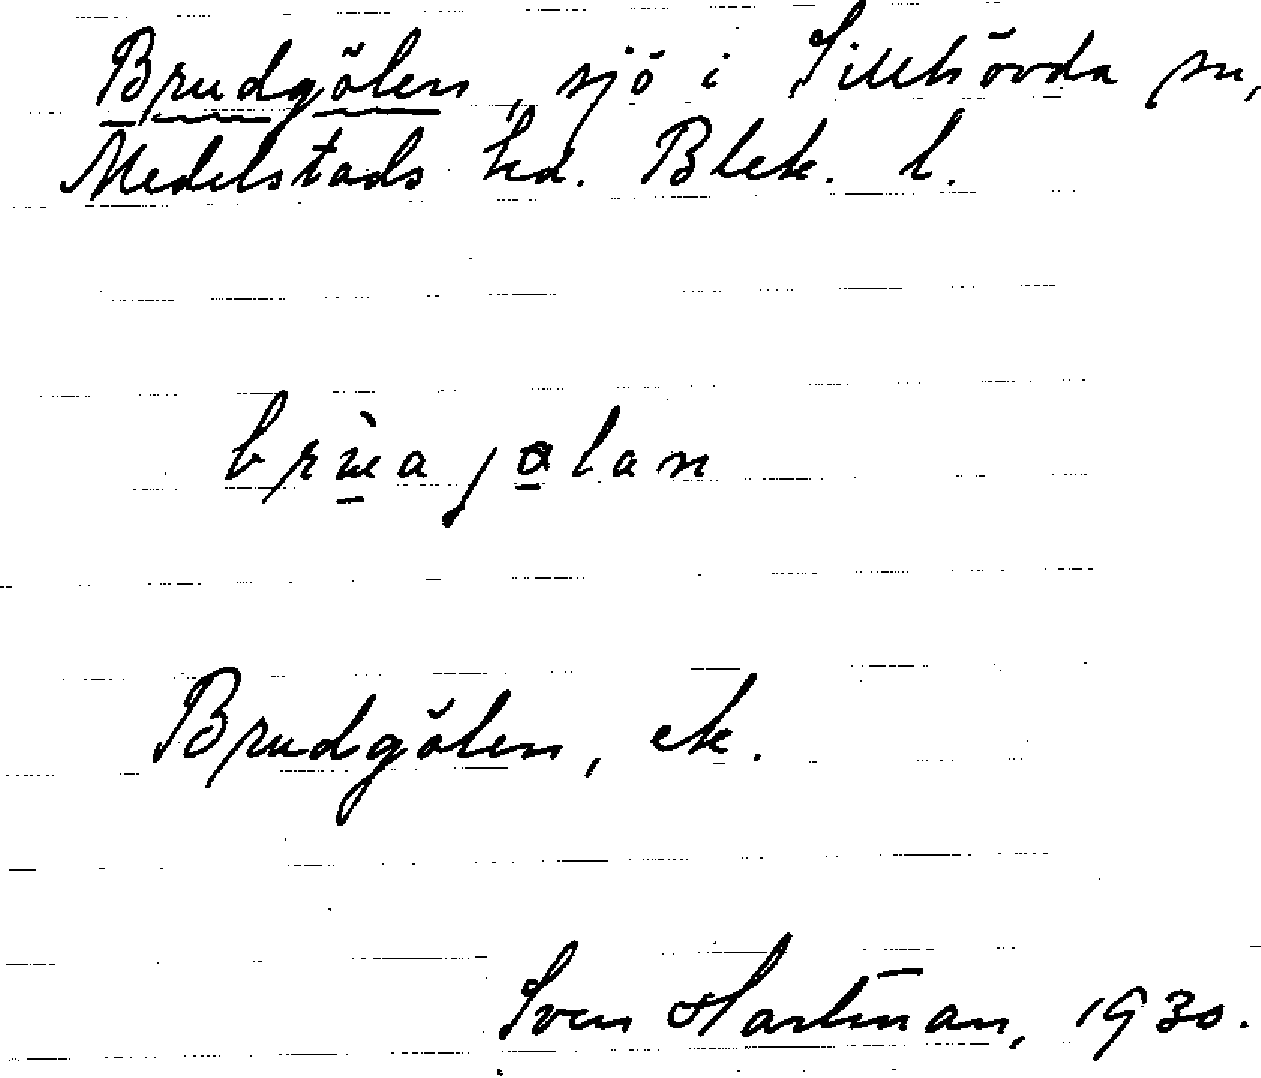 Brudgölen, sjö i Sillhövda sn,
Medelstads hd. Blek. l.
Brudgölen, ek.
Sven Hartman, 1930.